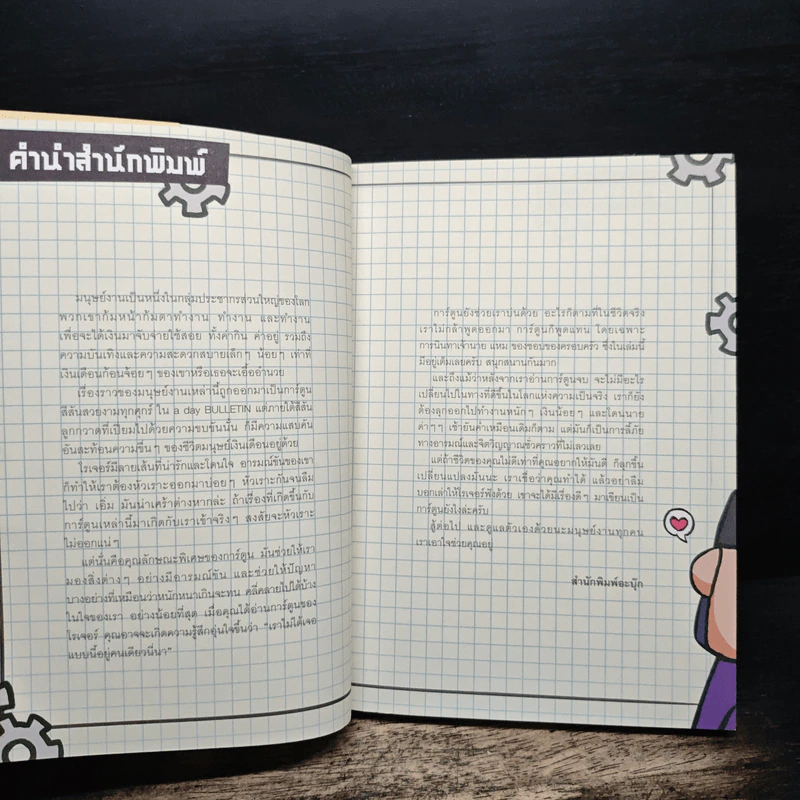 คำนำสำนักพิมพ์
มนุษย์งานเป็นหนึ่งในกลุ่มประชากรส่วนใหญ่ของโลก
พวกเขาก้มหน้าก้มตาทำงาน ทำงาน และทำงาน
เพื่อจะได้เงินมาจับจ่ายใช้สอย ทั้งค่ากิน ค่าอยู่ รวมถึง
ความบันเทิงและความสะดวกสบายเล็กๆ น้อยๆ เท่าที่
เงินเดือนก้อนจ้อยๆ ของเขาหรือเธอจะเอื้ออำนวย
เรื่องราวของมนุษย์งานเหล่านี้ถูกออกมาเป็นการ์ตูน
สีสันสวยงามทุกศุกร์ ใน a day BULLETIN แต่ภายใต้สีสัน
ลูกกวาดที่เปี่ยมไปด้วยความขบขันนั้น ก็มีความแสบคัน
อันสะท้อนความขื่นๆ ของชีวิตมนุษย์เงินเดือนอยู่ด้วย
โรเจอร์มีลายเส้นที่น่ารักและโดนใจ อารมณ์ขันของเขา
ก็ทำให้เราต้องหัวเราะออกมาบ่อยๆ หัวเราะกันจนลืม
ไปว่า เอ้ม มันน่าเศร้าต่างหากล่ะ ถ้าเรื่องที่เกิดขึ้นกับ
การ์ตูนเหล่านี้มาเกิดกับเราเข้าจริงๆ สงสัยจะหัวเราะ
ไม่ออกแน่ๆ
แต่นั่นคือคุณลักษณะพิเศษของการ์ตูน มันช่วยให้เรา
มองสิ่งต่างๆ อย่างมีอารมณ์ขัน และช่วยให้ปัญหา
บางอย่างที่เหมือนว่าหนักหนาเกินจะทน คลี่คลายไปได้บ้าง
ในใจของเรา อย่างน้อยที่สุด เมื่อคุณได้อ่านการ์ตูนของ
โรเจอร์ คุณอาจจะเกิดความรู้สึกอุ่นใจขึ้นว่า "เราไม่ได้เจอ
แบบนี้อยู่คนเดียวนี่นา"
การ์ตูนยังช่วยเราบ่นด้วย อะไรก็ตามที่ในชีวิตจริง
เราไม่กล้าพูดออกมา การ์ตูนก็พูดแทน โดยเฉพาะ
การนินทาเจ้านาย แหม ของชอบของครอบครัว ซึ่งในเล่มนี้
มีอยู่เต็มเลยครับ สนุกสนานกันมาก
และถึงแม้ว่าหลังจากเราอ่านการ์ตูนจบ จะไม่มีอะไร
เปลี่ยนไปในทางที่ดีขึ้นในโลกแห่งความเป็นจริง เราก็ยัง
ต้องลุกออกไปทำงานหนักๆ เงินน้อยๆ และโดนนาย
ด่าๆๆ เช้ายันค่ำเหมือนเดิมก็ตาม แต่มันก็เป็นการลี้ภัย
ทางอารมณ์และจิตวิญญาณชั่วคราวที่ไม่เลวเลย
แต่ถ้าชีวิตของคุณไม่ดีเท่าที่คุณอยากให้มันดี ก็ลุกขึ้น
เปลี่ยนแปลงมันนะ เราเชื่อว่าคุณทำได้ แล้วอย่าลืม
บอกเล่าให้โรเจอร์ฟังด้วย เขาจะได้มีเรื่องดีๆ มาเขียนเป็น
การ์ตูนยังไงล่ะครับ
สู้ต่อไป และดูแลตัวเองด้วยนะมนุษย์งานทุกคน
เราเอาใจช่วยคุณอยู่
สำนักพิมพ์อะบุ๊ก